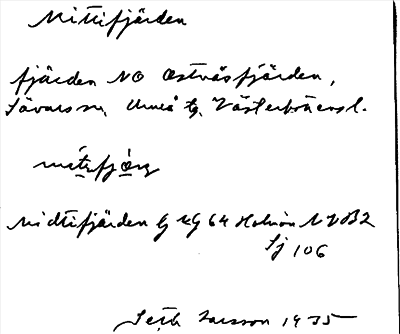 Mittifjärden
fjärden NO Östnäsfjärden,
Sävars sn, Umeå tg. Västerbottens l.
Midtifjärden G KG 64 Holmön NVB2
Sj 106
Seth Larsson 1935